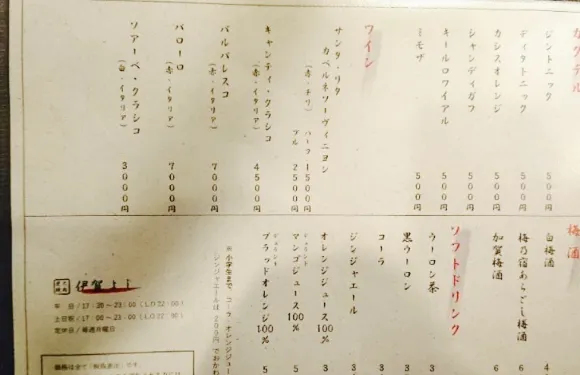 カクテル
ジントニック 500円
ディタトニック 500円
カシスオレンジ 500円
シャンディガフ 500円
キールロワイアル 500円
ミモザ 500円
ワイン
サンタ・リタ
カベルネソーヴィニヨン
(赤・チリ) ハーフ 1500円
フル 2500円
キャンティ・クラシコ
(赤・イタリア) 4500円
バルバレスコ
(赤・イタリア) 7000円
バローロ
(赤・イタリア) 7000円
ソアーベ・クラシコ
(白・イタリア) 3000円
梅酒
白梅酒 4
梅乃宿あらごし梅酒 6
加賀梅酒 6
ソフトドリンク
ウーロン茶 3
黒ウーロン 3
コーラ 3
ジンジャエール 3
オレンジジュース100% 3
マンゴジュース100% 5
ブラッドオレンジ100% 5
※小学生まで、コーラ・オレンジジュー
ジンジャエールは200円でおかわ
伊賀
平 日/17:20~23:00(LO22:00)
土日祝/17:00~23:00(LO22:00)
定休日/毎週月曜日
価格は全て「税抜表示」です。